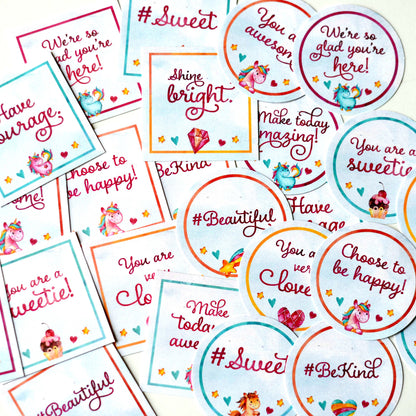 We're so
glad you're
here!
#Sweet
You a
awesom
We're so
glad you're
here!
Have
ourage.
Shine
bright.
Make today
mazing!
You are a
sweetie!
Choose to
be happy!
BeKind
#Beautiful
You a
ver
Clove
Choose to
be happy!
You are a
weetie!
You are
ver
Cl
Make
toda
awe
#Sweet
#BeKind
#Beautiful